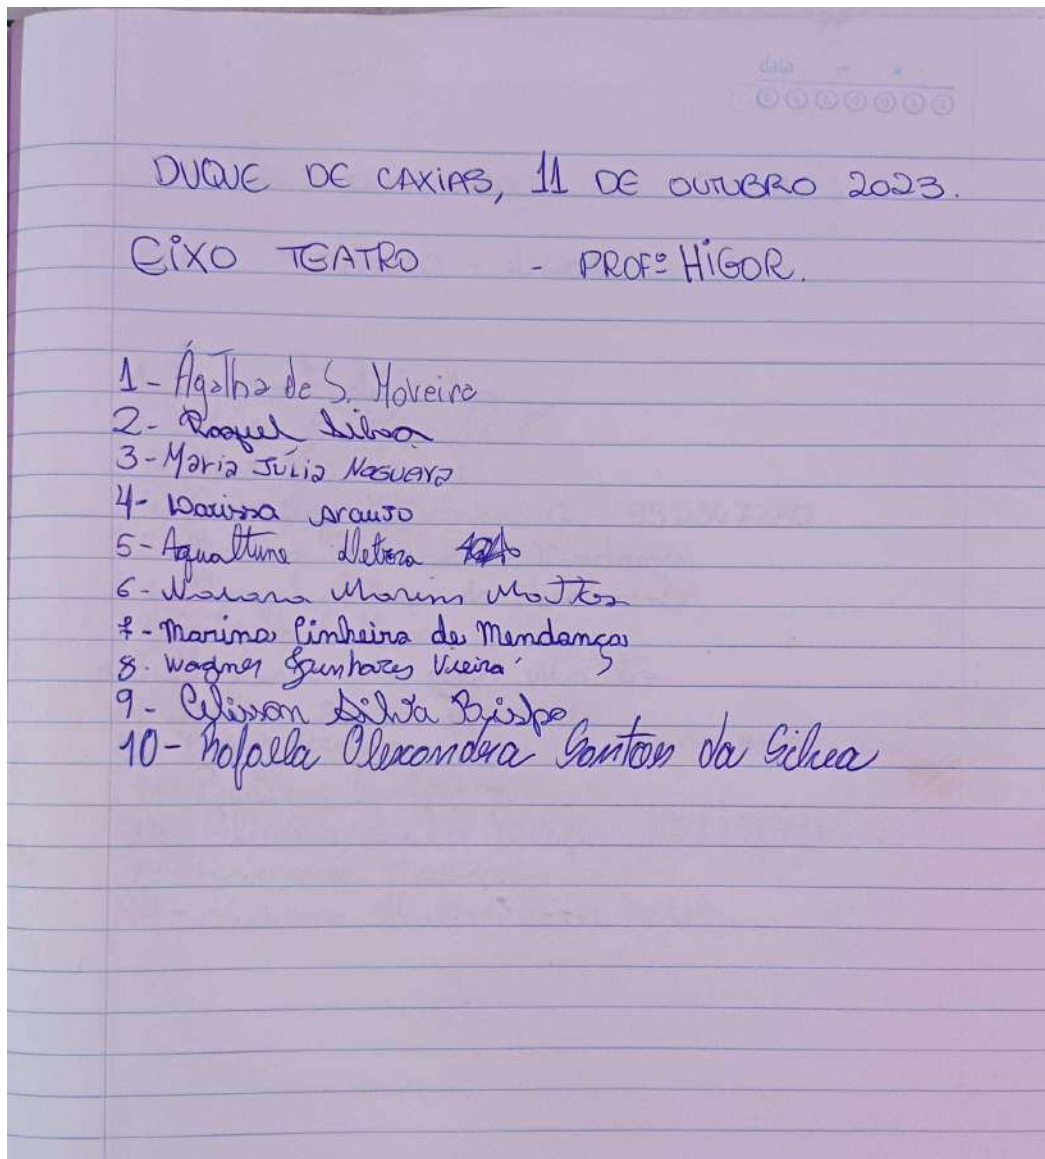 data
DUQUE DE CAXIAS, 11 DE OUTUBRO 2023.
EIXO TEATRO - PROFº HIGOR.
1 - Ágatha de S. Moreira
2 - Raquel Silva
3 - Maria Júlia Noguera
4 - Larissa Araujo
5 - Aqualtune
6 - Marins Mattos
7 - Marina Pinheiro de Mendonça
8. Wagner Vieira
9 - Silva Bispo
10 - Rafaella Alexandra Santos da Silva